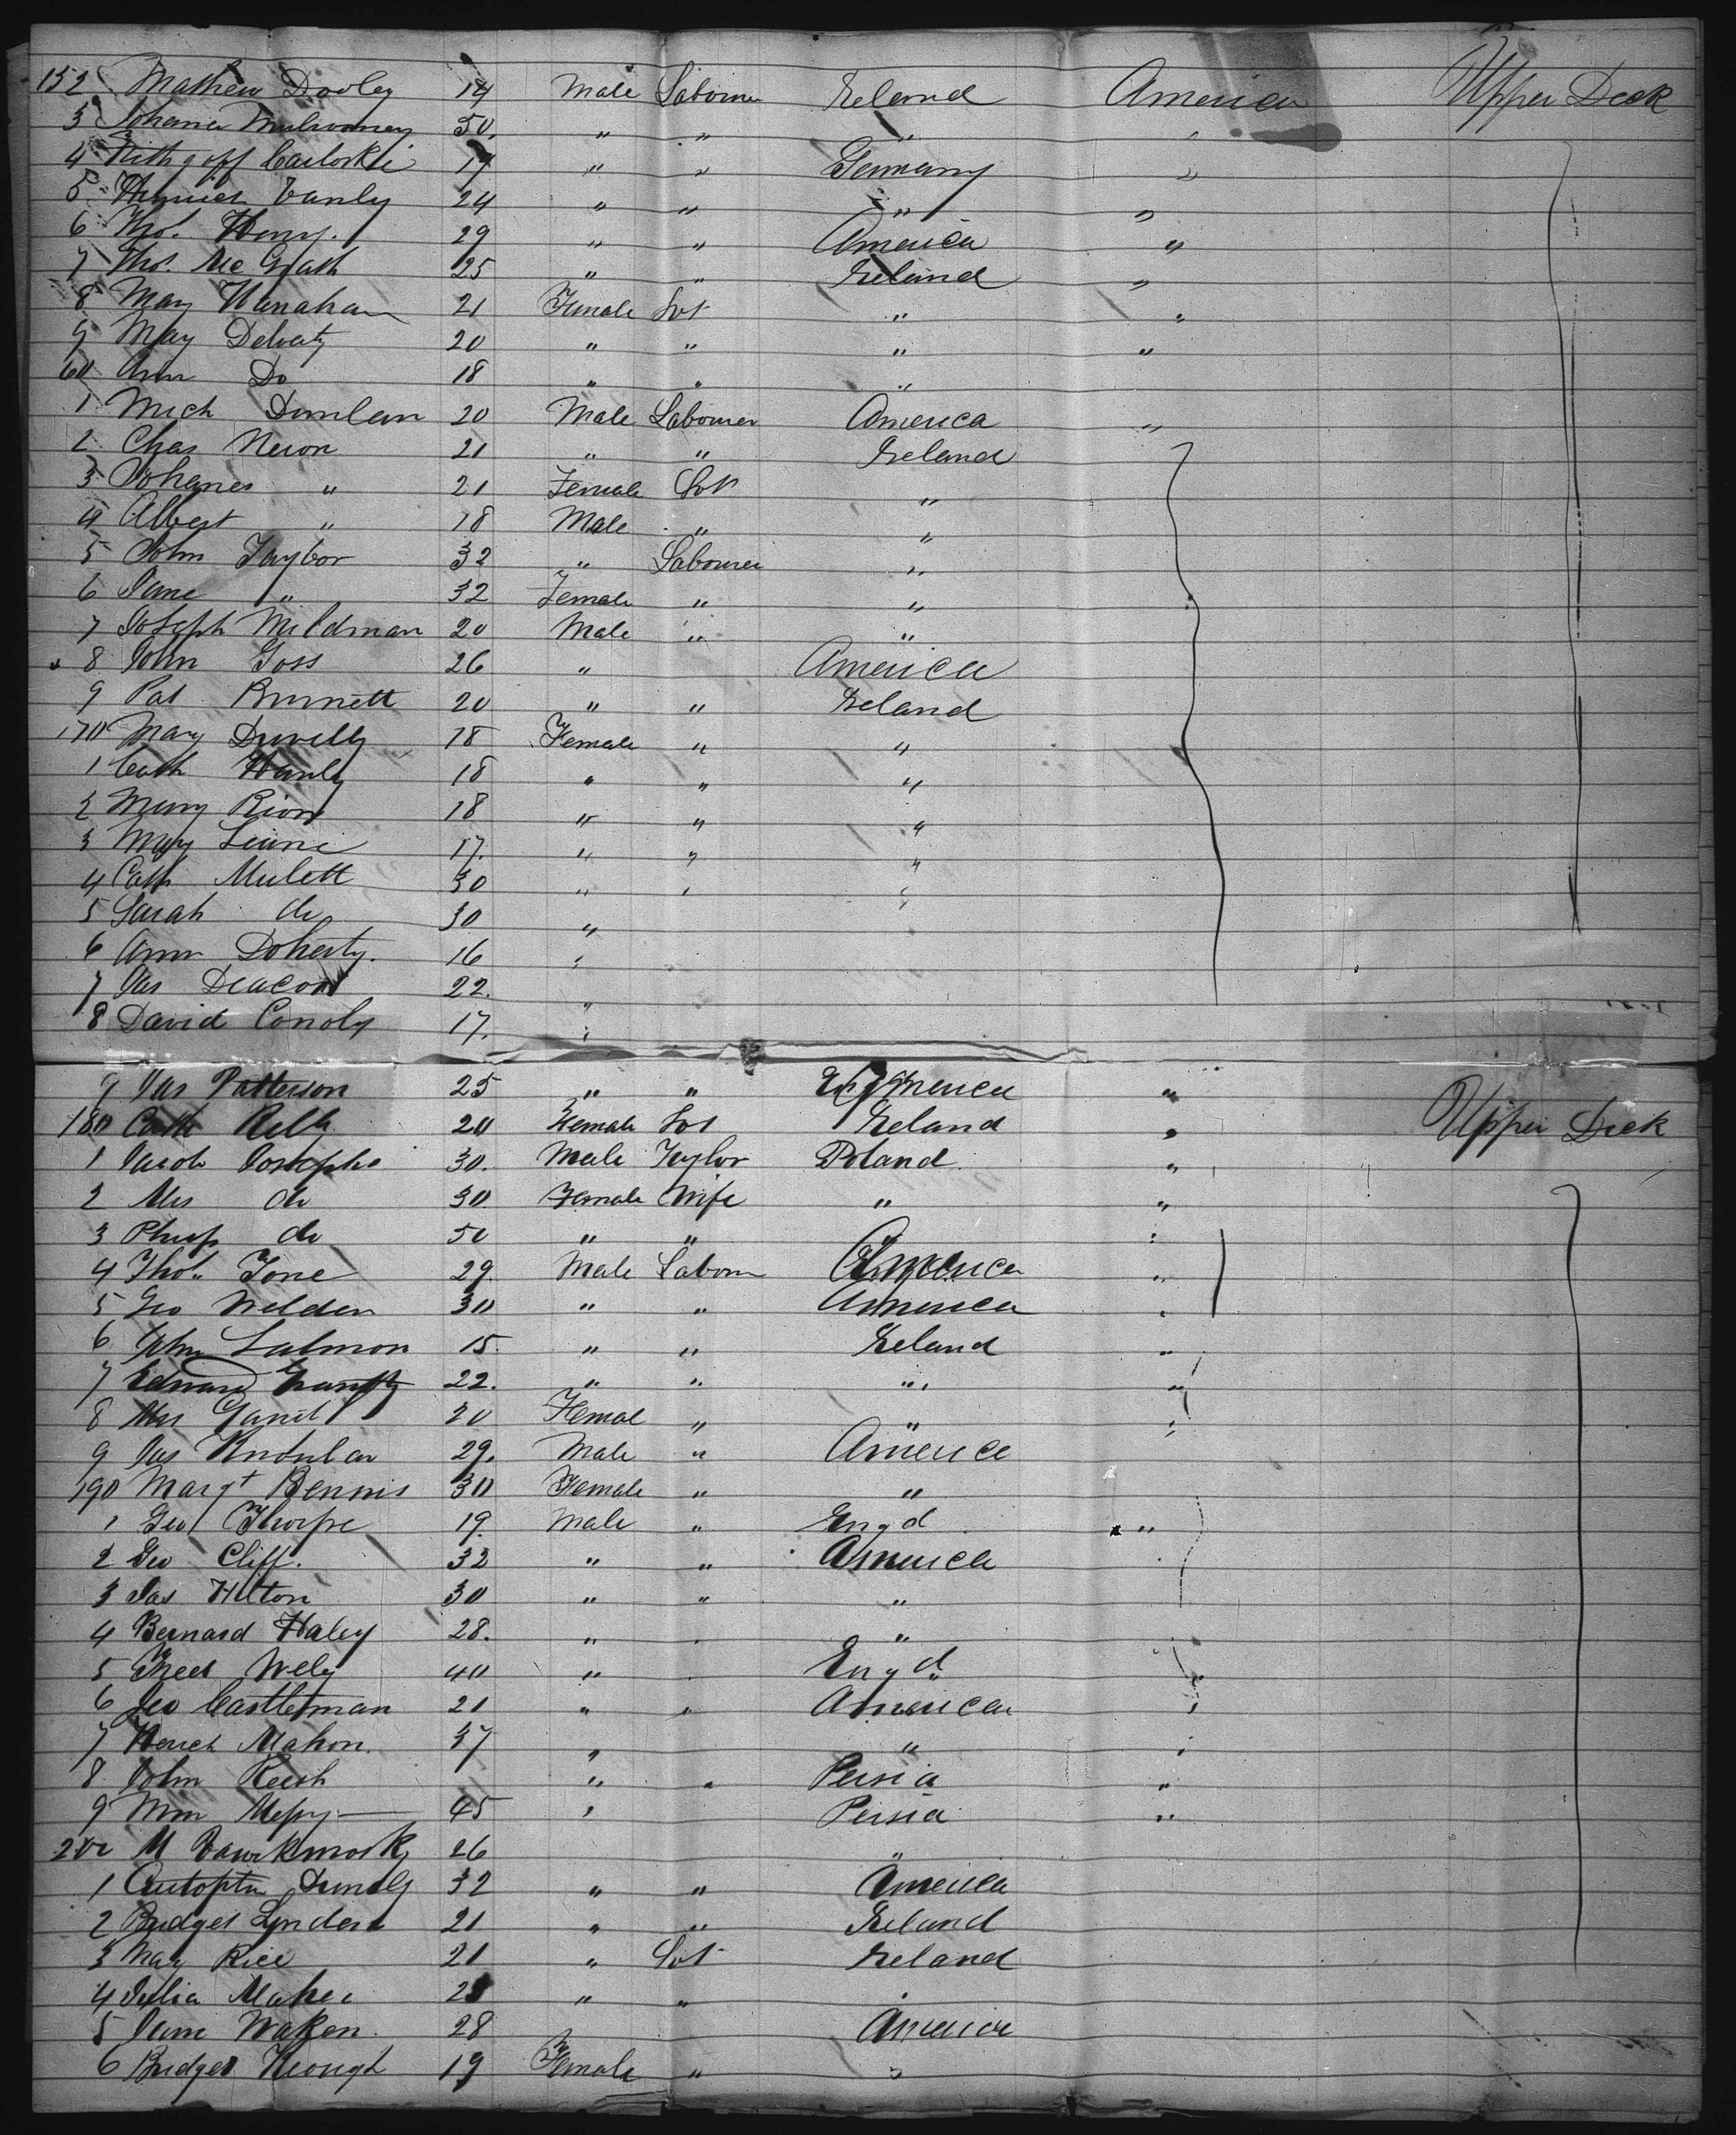 152 Mathew Dooley 14 Male Labourer Ireland America Upper Deck
3 Johana Mulrooney 50. " " " "
4 17 " " Germany "
5 24 " " " "
6 Tho. Henry. 29 " " America "
7 Thos. Mc Grath 25 " " Ireland "
8 Mary Hanahan 21 Female Svt " "
9 Mary Delvaty 20 " " " "
60 Ann Do 18 " " "
1 Mich Dunlean 20 Male Labourer America "
2 Chas Neron 21 " " Ireland
3 Johanes " 21 Female Svt "
4 Albert " 18 Male " "
5 John Taylor 32 " Labourer "
6 Jane " 32 Female " "
7 Joseph Mildman 20 Male " "
8 John Goss 26 " America
9 Pat Burnett 20 " " Ireland
170 Mary 18 Female " "
1 Cath Hanly 18 " " "
2 Mary Rion 18 " " "
3 Mary 17. " " "
4 Cath Mulett 30 " " "
5 Sarah do 30 "
6 Ann Doherty. 16 "
7 Jas Deacon 22. "
8 David Conoly 17. "
9 Jas Patterson 25 " " America "
180 Cath Relly 20 Female Svt Ireland " Upper Deck
1 Jacob Josephs 30. Male Taylor Poland "
2 Mrs do 30. Female Wife " "
3 do 50 " " " "
4 Tho. Tone 29. Male Labour America "
5 Geo Welden 30 " " America "
6 John Salmon 15. " " Ireland "
7 Edward 22. " " " "
8 Mrs 20 Femal " " "
9 Jas 29. Male " America
190 Margt Bennis 30 Female " "
1 Geo Thorpe 19. Male " Engd "
2 Geo Cliff. 32 " " America
3 Jas Hilton 30 " " "
4 Bernard Haley 28. " "
5 Wely 40 " Engd
6 Geo Castleman 21 " " America
7 Mahon. 37 " "
8 John Reesh " " Persia "
9 Wm 45 " Persia "
200 M 26 "
1 32 " " America
2 Bridget Lyndera 21 " " Ireland
3 May Rice 21 " Svt Ireland
4 Julia Maher 2 " "
5 Jane Waken. 28 America
6 Bridget Keough 19 Female " "